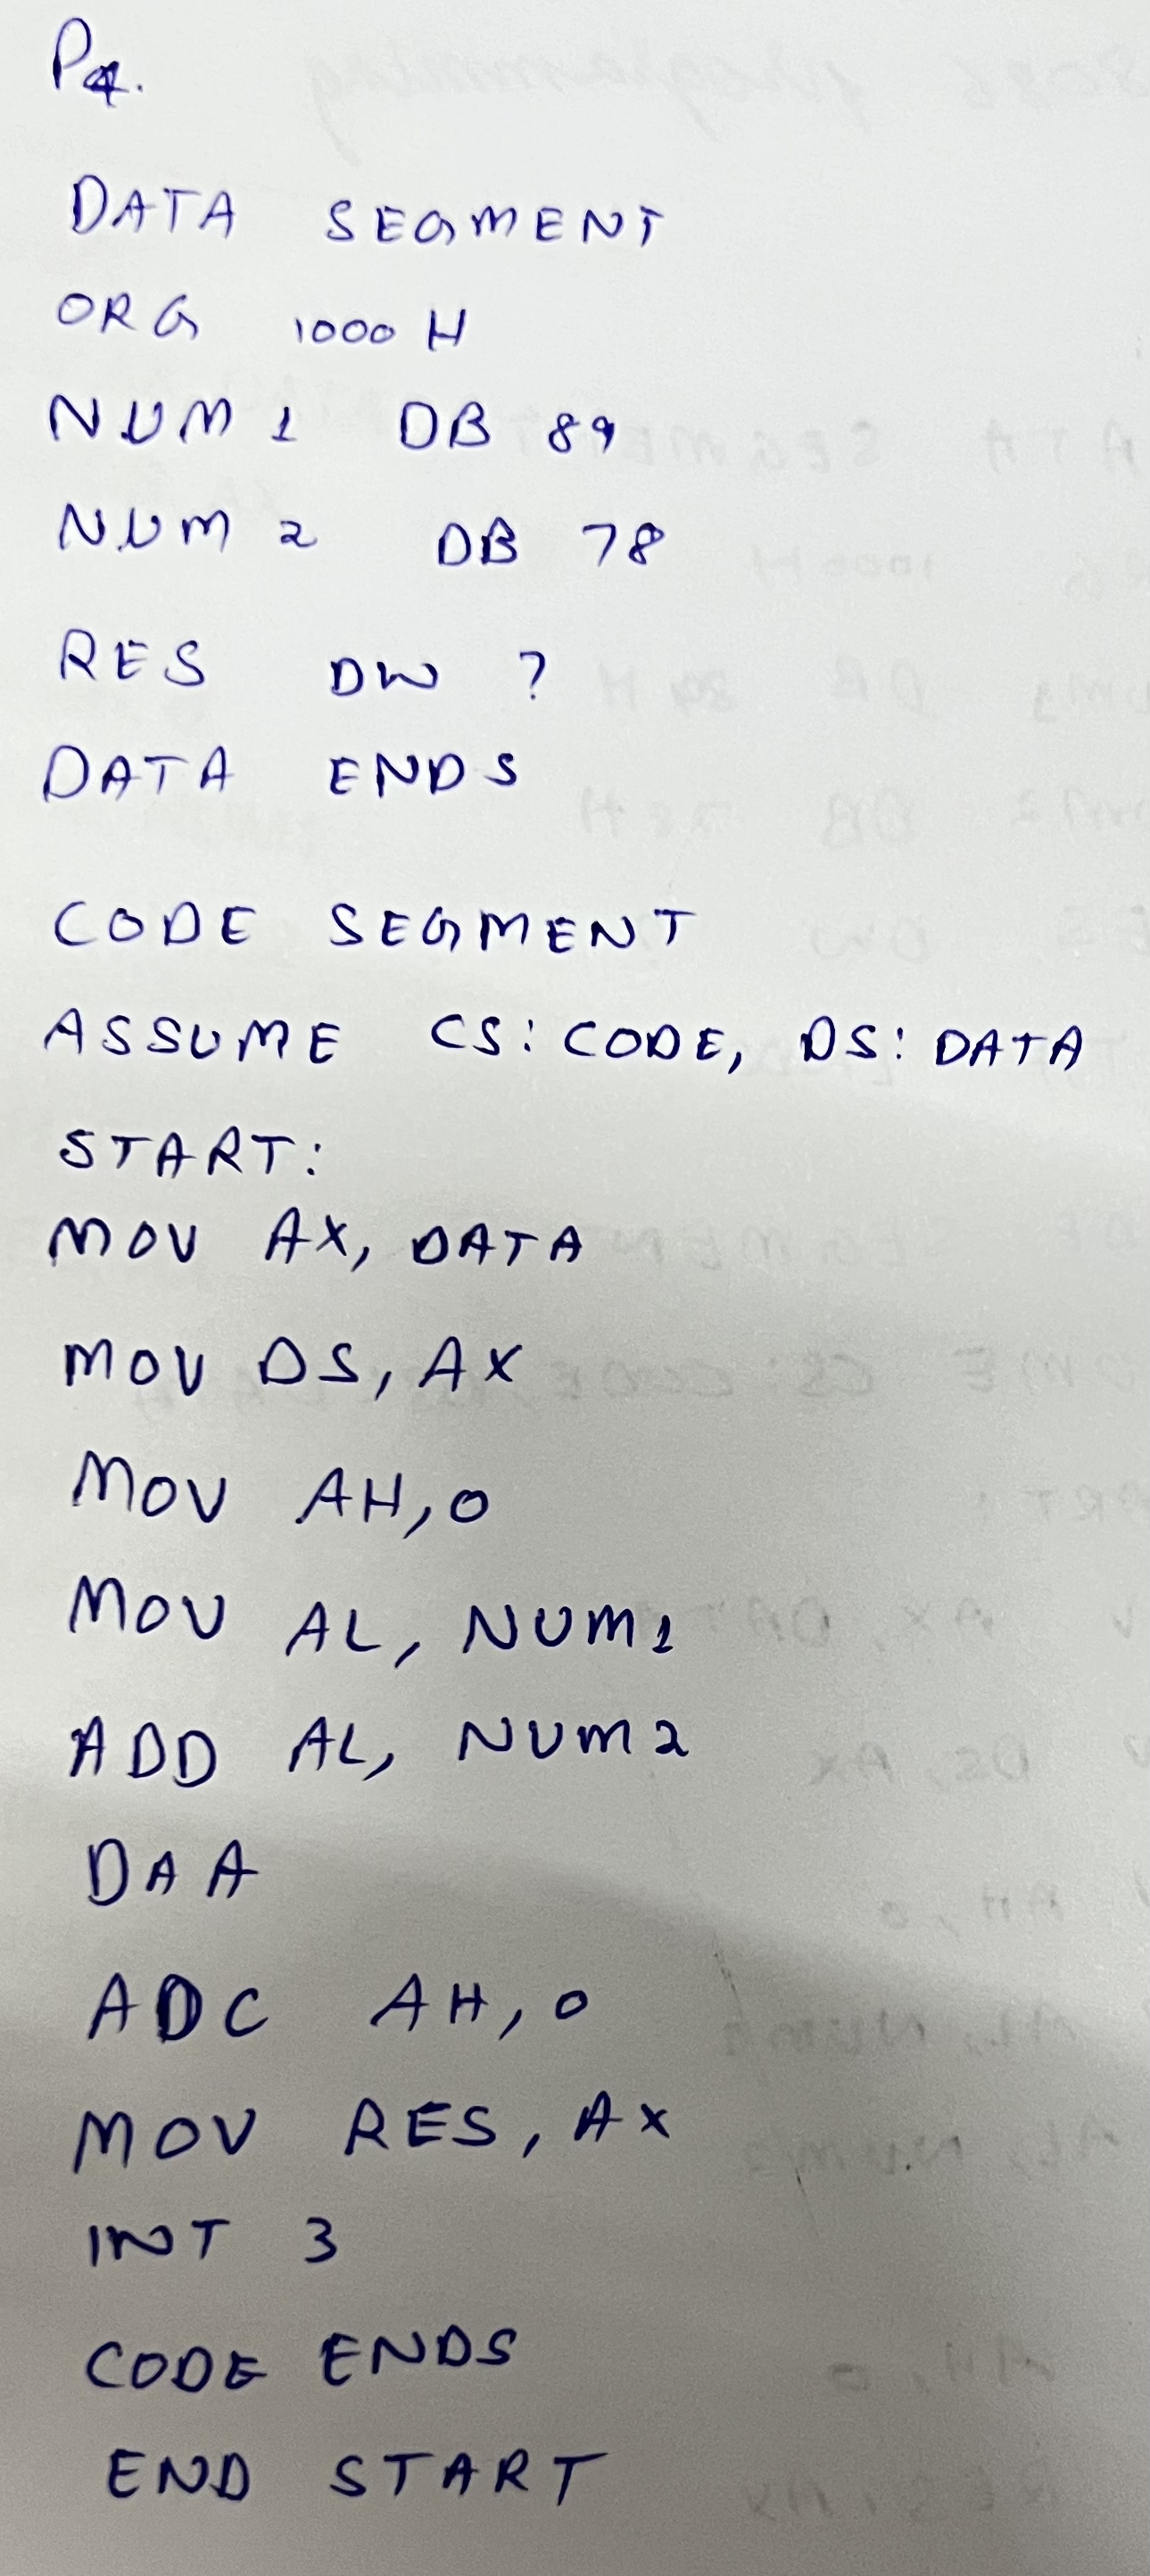 P4.
DATA SEGMENT
ORG 1000 H
NUM 1 DB 89
NUM 2 DB 78
RES DW ?
DATA ENDS
CODE SEGMENT
ASSUME CS: CODE, DS: DATA
START:
MOV AX, DATA
MOV DS, AX
MOV AH, 0
MOV AL, NUM1
ADD AL, NUM2
DAA
ADC AH, 0
MOV RES, AX
INT 3
CODE ENDS
END START